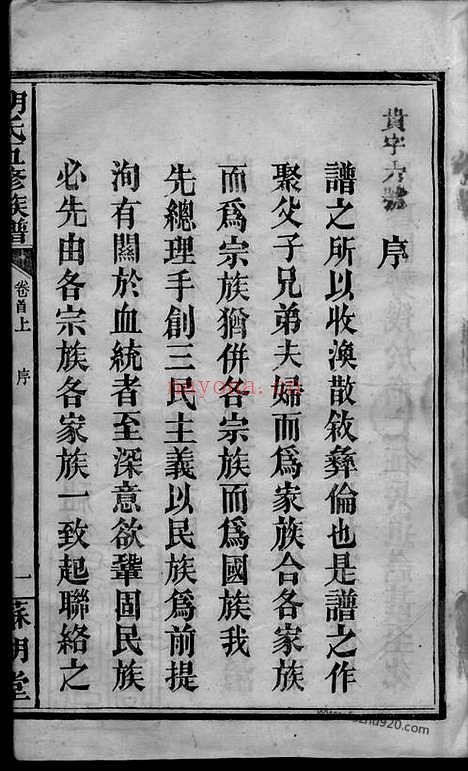 貴字六號
序
譜之所以收渙散敘彝倫也是譜之作
聚父子兄弟夫婦而爲家族合各家族
而爲宗族猶併各宗族而爲國族我
先總理手創三民主義以民族爲前提
洵有關於血統者至深意欲鞏固民族
必先由各宗族各家族一致起聯絡之
胡氏五修族譜
卷首上
序
一
蘇湖堂
nayona.cn